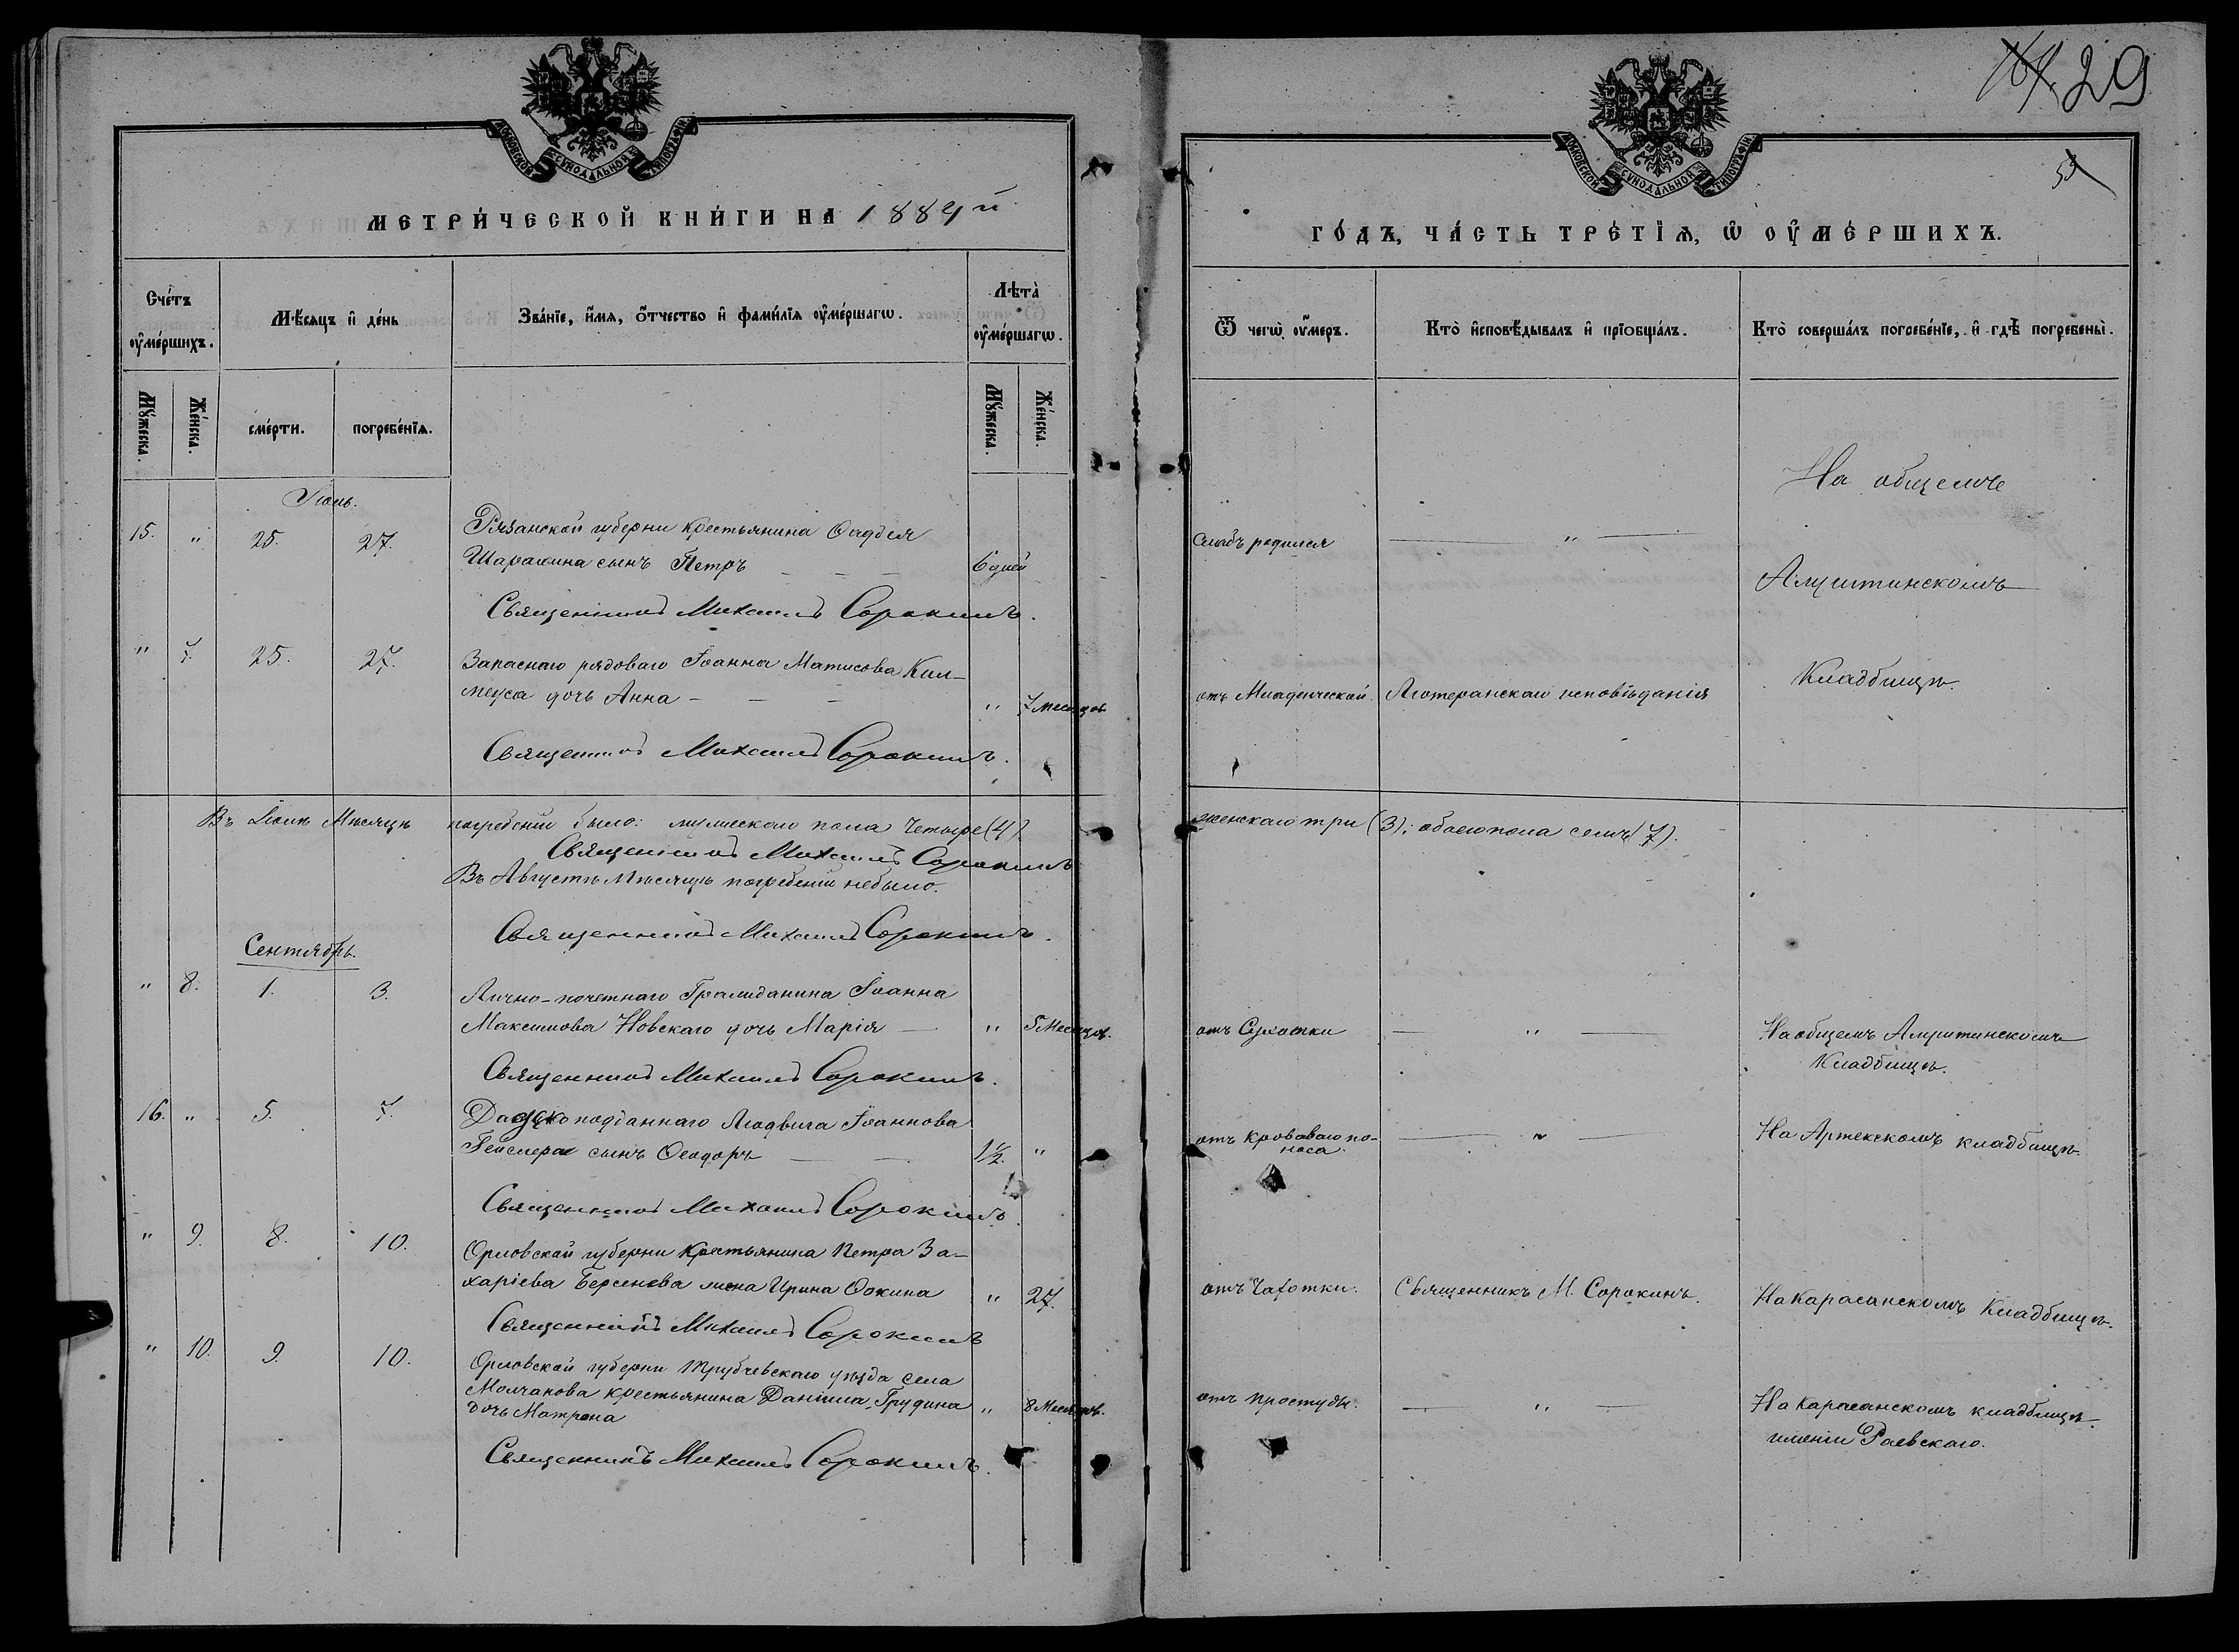 МОСКОВСКОЙ СѴНОДАЛЬНОЙ ТИПОГРАФІИ
МЕТРИ́ЧЕСКОЙ КНИ́ГИ НА 1889й
Сче́тъ оу҆ме́ршихъ.
Мѣ́сяцъ и҆ де́нь
Зва́нїе, и҆́мя, ѻ҆́тчество и҆ фами́лїя оу҆ме́ршагѡ.
Лѣ́та оу҆ме́ршагѡ.
Мꙋ́жеска.
Же́нска.
сме́рти.
погребе́нїѧ.
Мꙋ́жеска.
Же́нска.
Іюль.
15. " 25. 27. Рязанской губерни крестьянина Фаддея
Шаракина сынъ Петръ — — — 6 дней
Священникъ Михаилъ Сорокинъ.
" 7. 25. 27. Запаснаго рядоваго Іоанна Матисова
дочь Анна — — — " 7 месяцов
Священникъ Михаилъ Сорокинъ.
Въ Іюлѣ Мѣсяцѣ погребеній было: мужескаго пола четыре (4)
Священникъ Михаилъ Сорокинъ
Въ Августѣ Мѣсяцѣ погребеній небыло.
Священникъ Михаилъ Сорокинъ.
Сентябрь.
" 8. 1. 3. Лично-почетнаго Гражданина Іоанна
Максимова Новскаго дочь Марія — " 5 Месяцов.
Священникъ Михаилъ Сорокинъ.
16. " 5. 7. подданнаго Людвига Іоаннова
Гейслера сынъ Ѳеодоръ — — 1½. "
Священникъ Михаилъ Сорокинъ.
" 9. 8. 10. Орловской губерни крестьянина Петра За-
харіева Берсенева жена Ирина Фокина " 27.
Священникъ Михаилъ Сорокинъ
" 10. 9. 10. Орловской губерни Трубчевскаго уѣзда села
Молчанова крестьянина Даніила Грудина " 8 Месяцов.
дочь Матрона
Священникъ Михаилъ Сорокинъ.
29
МОСКОВСКОЙ СѴНОДАЛЬНОЙ ТИПОГРАФІИ
ГО́ДЪ, ЧА́СТЬ ТРЕ́ТЇѦ, Ѡ҆ ОУ҆МЕ́РШИХЪ.
Ѿ чегѡ̀ оу҆́меръ.
Кто̀ и҆сповѣ́дывалъ и҆ прїобща́лъ.
Кто̀ соверша́лъ погребе́нїе, и҆ гдѣ̀ погребены̀.
На общемъ
слабъ родился — " —
Алуштинскомъ
Кладбищѣ.
отъ Младенческой. Лютеранскаго исповѣданія
женскаго три (3); обоего пола семь (7).
отъ Сухотки — " — На общемъ Алуштинскомъ
Кладбищѣ.
отъ кроваваго по-
носа. — " — На Артекскомъ кладбищѣ.
отъ Чахотки. Священникъ М. Сорокинъ. На Карасанскомъ Кладбищѣ.
отъ простуды. — " — На Карасанскомъ кладбищѣ.
имѣніи Раевскаго.